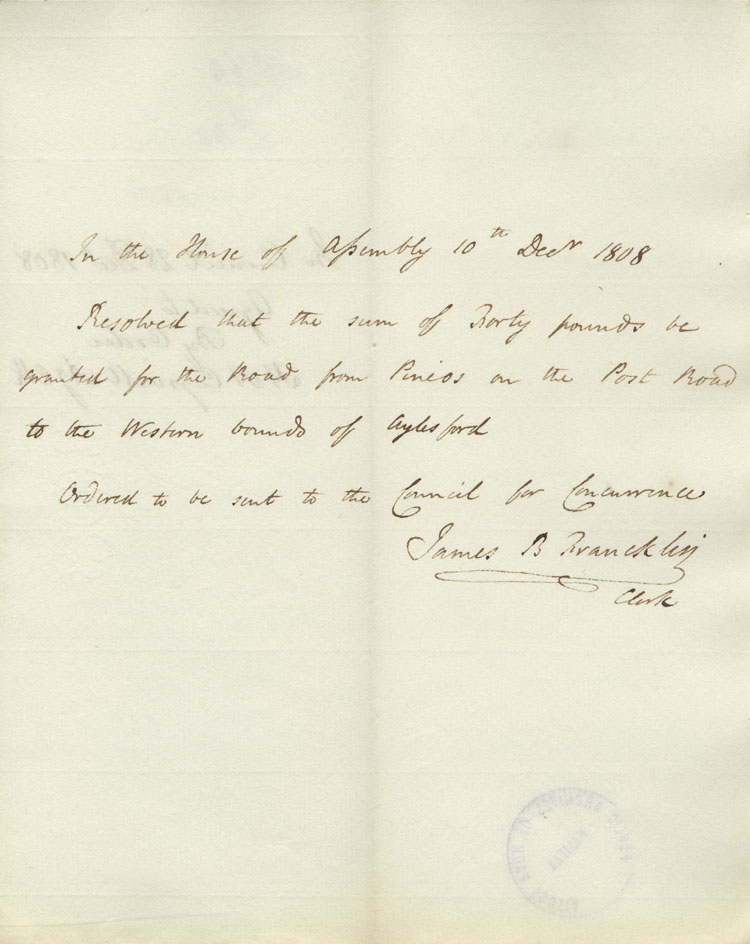 In the House of Assembly 10th Decr 1808
Resolved that the sum of Forty pounds be
granted for the Road from Pineos on the Post Road
to the Western bounds of Aylesford
Ordered to be sent to the Council for Concurrence
James B Francklin
Clerk
PUBLIC ARCHIVES OF NOVA SCOTIA